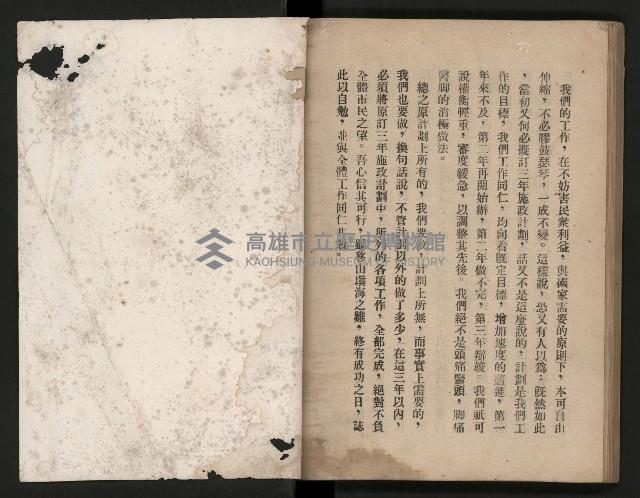 我們的工作，在不妨害民衆利益，與國家需要的原則下，本可自由
伸縮，不必膠鼓瑟琴，一成不變。這樣說，恐又有人以爲：旣然如此
，當初又何必擬訂三年施政計劃，話又不是這麼說的，計劃是我們工
作的目標，我們工作同仁，均向着旣定目標，增加速度的邁進，第一
年來不及，第二年再開始辦，第二年做不完，第三年辦竣。我們祇可
說權衡輕重，審度緩急，以調整其先後，我們絕不是頭痛醫頭，脚痛
醫脚的消極做法。
總之原計劃上所有的，我們要做，計劃上所無，而事實上需要的，
我們也要做，換句話說，不管計劃以外的做了多少，在這三年以內，
必須將原訂三年施政計劃中，所列的各項工作，全部完成，絕對不負
全體市民之望。吾心信其可行，雖移山塡海之難，終有成功之日，誌
此以自勉，並與全體工作同仁共勉。
高雄市立歷史博物館
KAOHSIUNG MUSEUM OF HISTORY